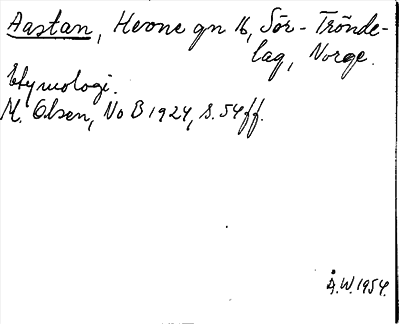 Aastan, Hevne gn 16, Sör-Trönde-
lag, Norge.
Etymologi.
M. Olsen, No B 1924, s. 54ff.
Å.W. 1954.